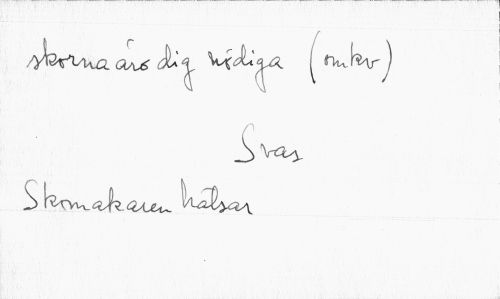 skorna äro dig nödiga (omkv)
Svas
Skomakaren hälsar